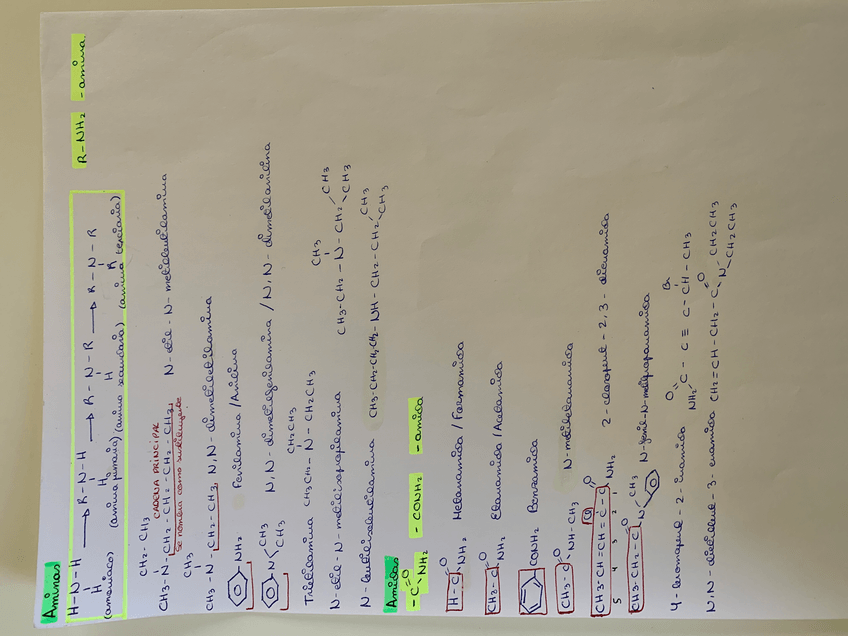 Aminas
H-N-H → R-N-H → R-N-R → R-N-R R-NH2 -amina
H H H R
(amoniaco) (amina primaria) (amina secundaria) (amina terciaria)
CH2-CH3 CADENA PRINCIPAL
CH3-N-CH2-CH2-CH2-CH3 N-etil-N-metilbutilamina
Se nombra como sustituyente
CH3
CH3-N-CH2-CH3 N,N-dimetiletilamina
NH2 Fenilamina/Anilina
N CH3 CH3 N,N-dimetilfenilamina / N,N-dimetilanilina
CH2CH3
Trietilamina CH3CH2-N-CH2CH3
CH3
N-etil-N-metilisopropilamina CH3-CH2-N-CH2 CH3 CH3
N-butilisobutilamina CH3-CH2-CH2-CH2-NH-CH2-CH2 CH3 CH3
Amidas
-C O NH2 -CONH2 -amida
H-C O NH2 Metanamida/Formamida
CH3-C O NH2 Etanamida/Acetamida
CONH2 Benzamida
CH3-C O NH-CH3 N-metiletanamida
CH3-CH=C=C-C O NH2 2-cloropent-2,3-dienamida
Cl
5 4 3 2 1
CH3-CH2-C O N CH3 N-fenil-N-metilpropanamida
4-bromopent-2-inamida NH2 O C-C≡C-CH-CH3
Br
N,N-dietilbut-3-enamida CH2=CH-CH2-C O N-CH2CH3 CH2CH3